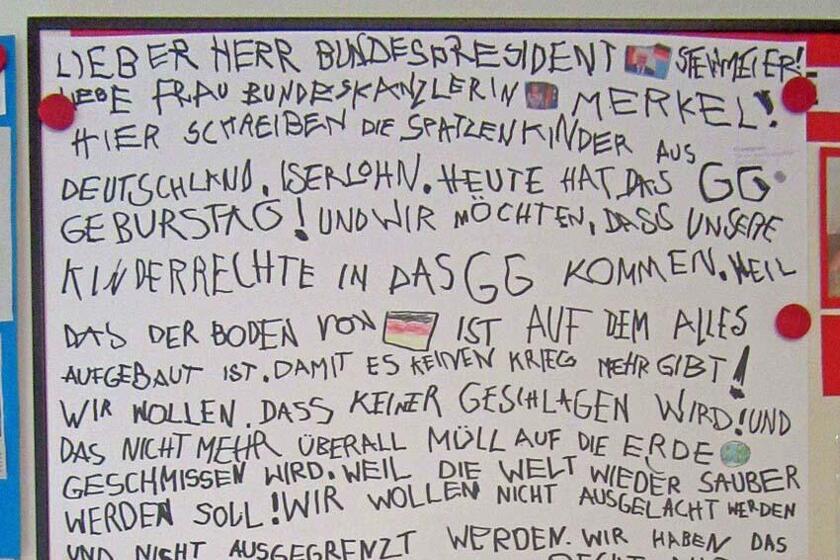 LIEBER HERR BUNDESPRESIDENT STEINMEIER!
LIEBE FRAU BUNDESKANZLERIN MERKEL!
HIER SCHREIBEN DIE SPATZENKINDER AUS
DEUTSCHLAND. ISERLOHN. HEUTE HAT DAS GG
GEBURSTAG! UND WIR MÖCHTEN, DASS UNSERE
KINDERRECHTE IN DAS GG KOMMEN. WEIL
DAS DER BODEN VON IST AUF DEM ALLES
AUFGEBAUT IST. DAMIT ES KEINEN KRIEG MEHR GIBT!
WIR WOLLEN, DASS KEINER GESCHLAGEN WIRD! UND
DAS NICHT MEHR ÜBERALL MÜLL AUF DIE ERDE
GESCHMISSEN WIRD. WEIL DIE WELT WIEDER SAUBER
WERDEN SOLL! WIR WOLLEN NICHT AUSGELACHT WERDEN
UND NICHT AUSGEGRENZT WERDEN. WIR HABEN DAS